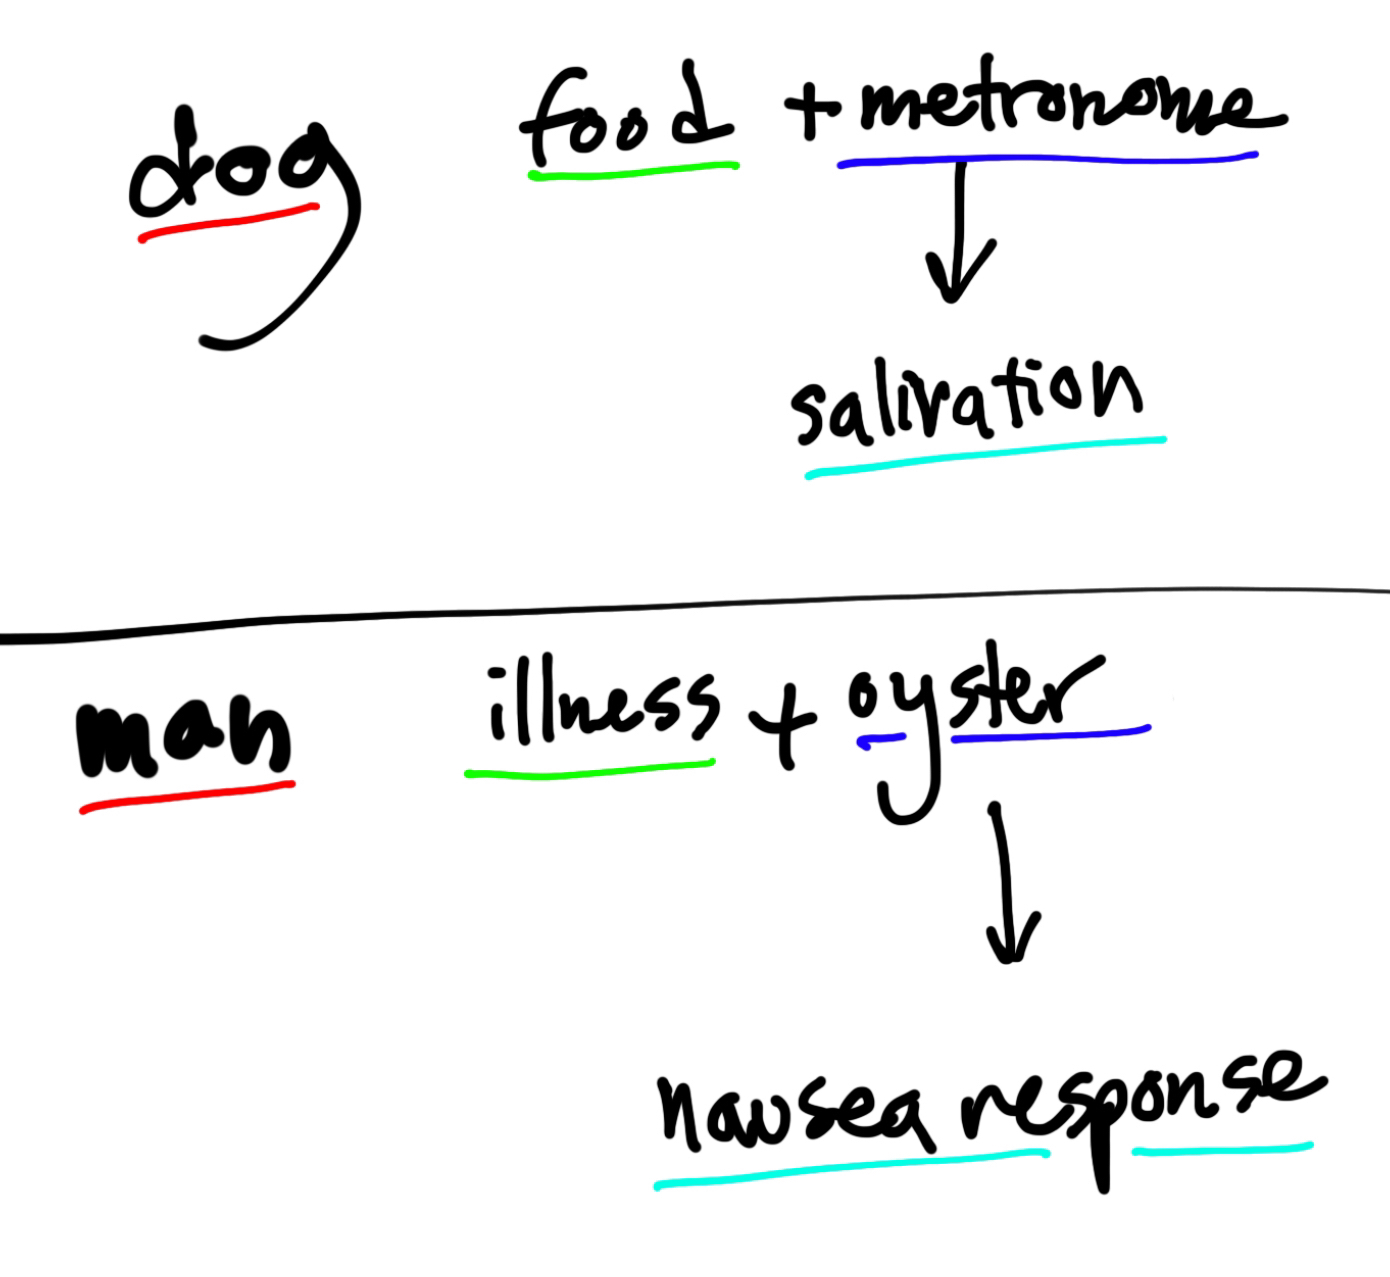 dog food + metronome
salivation
man illness + oyster
nausea response